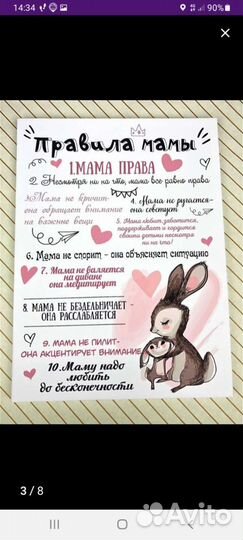 14:34
90%
Правила мамы
1.МАМА ПРАВА
2. Несмотря ни на что, мама все равно права
3.Мама не кричит-
она обращает внимание
на важные вещи
4. Мама не ругается-
она советует
5. Мама любит, заботится,
поддерживает и гордится
своими детьми несмотря
ни на что!
6. Мама не спорит - она объясняет ситуацию
7. Мама не валяется
на диване
она медитирует
8. МАМА НЕ БЕЗДЕЛЬНИЧАЕТ -
ОНА РАССЛАБЛЯЕТСЯ
9. МАМА НЕ ПИЛИТ-
ОНА АКЦЕНТИРУЕТ ВНИМАНИЕ
10.Маму надо
любить
до бесконечности
3 / 8
Avito